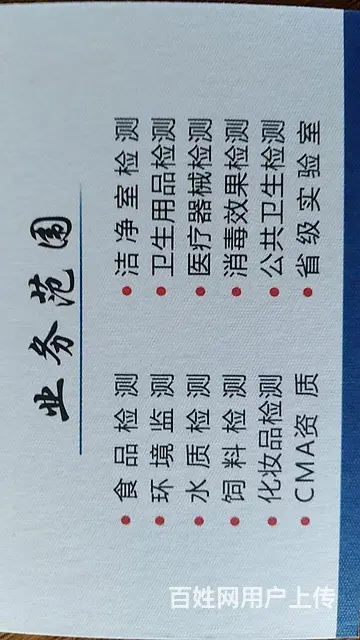 业务范围
食品检测 洁净室检测
环境监测 卫生用品检测
水质检测 医疗器械检测
饲料检测 消毒效果检测
化妆品检测 公共卫生检测
CMA资质 省级实验室
百姓网用户上传